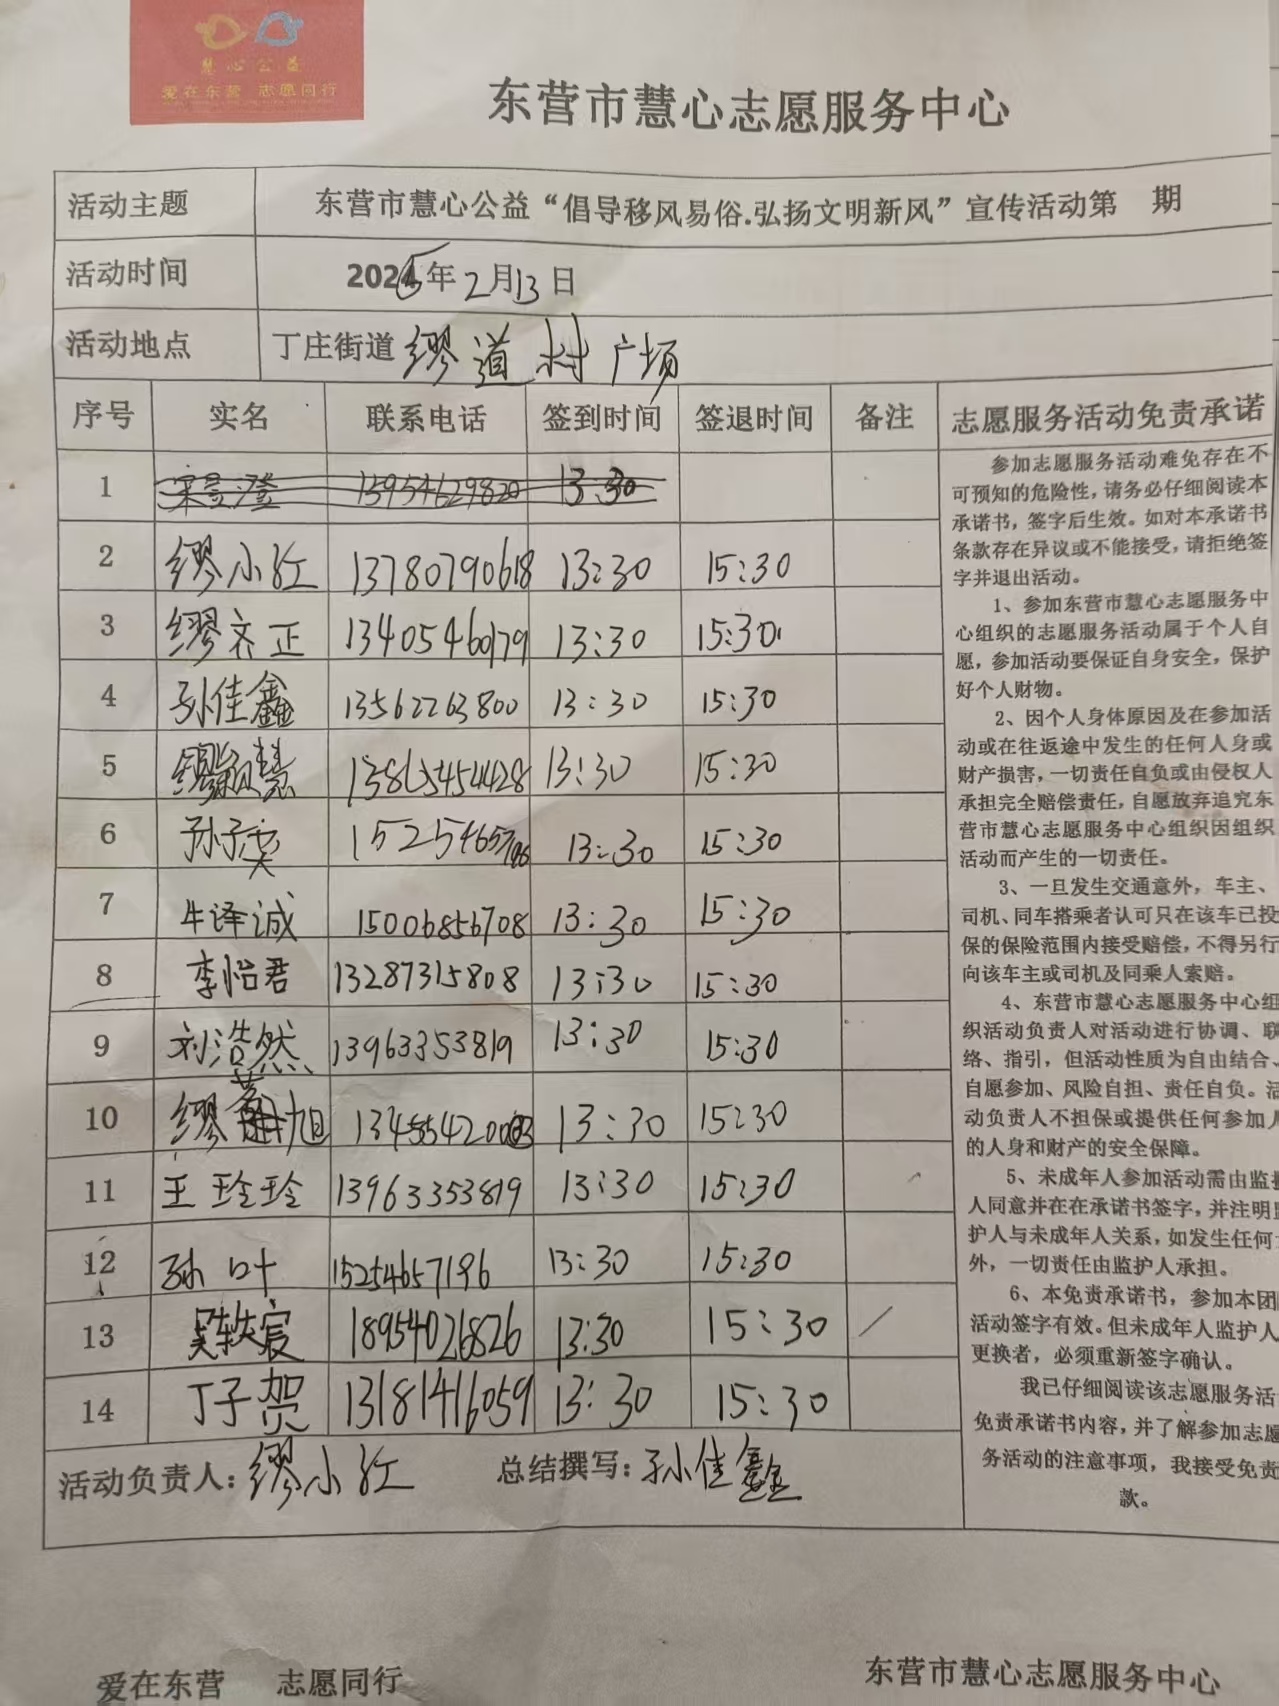 慧心公益
爱在东营 志愿同行
东营市慧心志愿服务中心
活动主题 东营市慧心公益“倡导移风易俗.弘扬文明新风”宣传活动第 期
活动时间 2025年2月13日
活动地点 丁庄街道缪道村广场
序号 实名 联系电话 签到时间 签退时间 备注
1 宋昱澄 15954629820 13:30
2 缪小红 13780790618 13:30 15:30
3 缪齐正 13405460179 13:30 15:30
4 孙佳鑫 13562263800 13:30 15:30
5 缪颖慧 13:30 15:30
6 孙子雯 13:30 15:30
7 牛译诚 15006856708 13:30 15:30
8 李怡君 13287315808 13:30 15:30
9 刘浩然 13963353819 13:30 15:30
10 缪 旭 13:30 15:30
11 王玲玲 13963353819 13:30 15:30
12 孙叶 15254657196 13:30 15:30
13 吴轶宸 18954026826 13:30 15:30
14 丁子贺 13181416059 13:30 15:30
活动负责人:缪小红 总结撰写:孙佳鑫
志愿服务活动免责承诺
参加志愿服务活动难免存在不
可预知的危险性,请务必仔细阅读本
承诺书,签字后生效。如对本承诺书
条款存在异议或不能接受,请拒绝签
字并退出活动。
1、参加东营市慧心志愿服务中
心组织的志愿服务活动属于个人自
愿,参加活动要保证自身安全,保护
好个人财物。
2、因个人身体原因及在参加活
动或在往返途中发生的任何人身或
财产损害,一切责任自负或由侵权人
承担完全赔偿责任,自愿放弃追究东
营市慧心志愿服务中心组织因组织
活动而产生的一切责任。
3、一旦发生交通意外,车主、
司机、同车搭乘者认可只在该车已投
保的保险范围内接受赔偿,不得另行
向该车主或司机及同乘人索赔。
4、东营市慧心志愿服务中心组
织活动负责人对活动进行协调、联
络、指引,但活动性质为自由结合、
自愿参加、风险自担、责任自负。活
动负责人不担保或提供任何参加人
的人身和财产的安全保障。
5、未成年人参加活动需由监护
人同意并在在承诺书签字,并注明监
护人与未成年人关系,如发生任何
外,一切责任由监护人承担。
6、本免责承诺书,参加本团
活动签字有效。但未成年人监护人
更换者,必须重新签字确认。
我已仔细阅读该志愿服务活
免责承诺书内容,并了解参加志愿
务活动的注意事项,我接受免责
款。
爱在东营 志愿同行
东营市慧心志愿服务中心